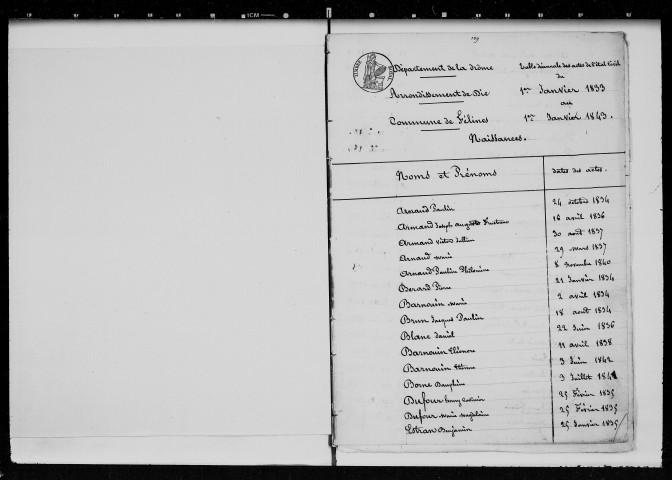 Département de la drôme
Arrondissement de Die
Commune de Félines
Table décennale des actes de l'état Civil
du
1er Janvier 1833
au
1er Janvier 1843.
Naissances.
Noms et Prénoms dates des actes.
Arnaud Paulin 24 octobre 1834
Armand Joseph auguste 16 avril 1836
Armand victor 30 août 1837
Arnaud marie 29 mars 1837
Arnaud Pauline Philomène 8 novembre 1840
Berard Pierre 21 Janvier 1834
Barnouin marie 2 avril 1834
Brun Jacques Paulin 18 août 1834
Blanc daniel 22 Juin 1836
Barnouin Eléonore 11 avril 1838
Barnouin Etienne 3 Juin 1842
Borne Dauphine 3 Juillet 1842
Dufour 25 Février 1835
Dufour marie magdelaine 25 Février 1835
Estran Benjamin 25 Janvier 1835